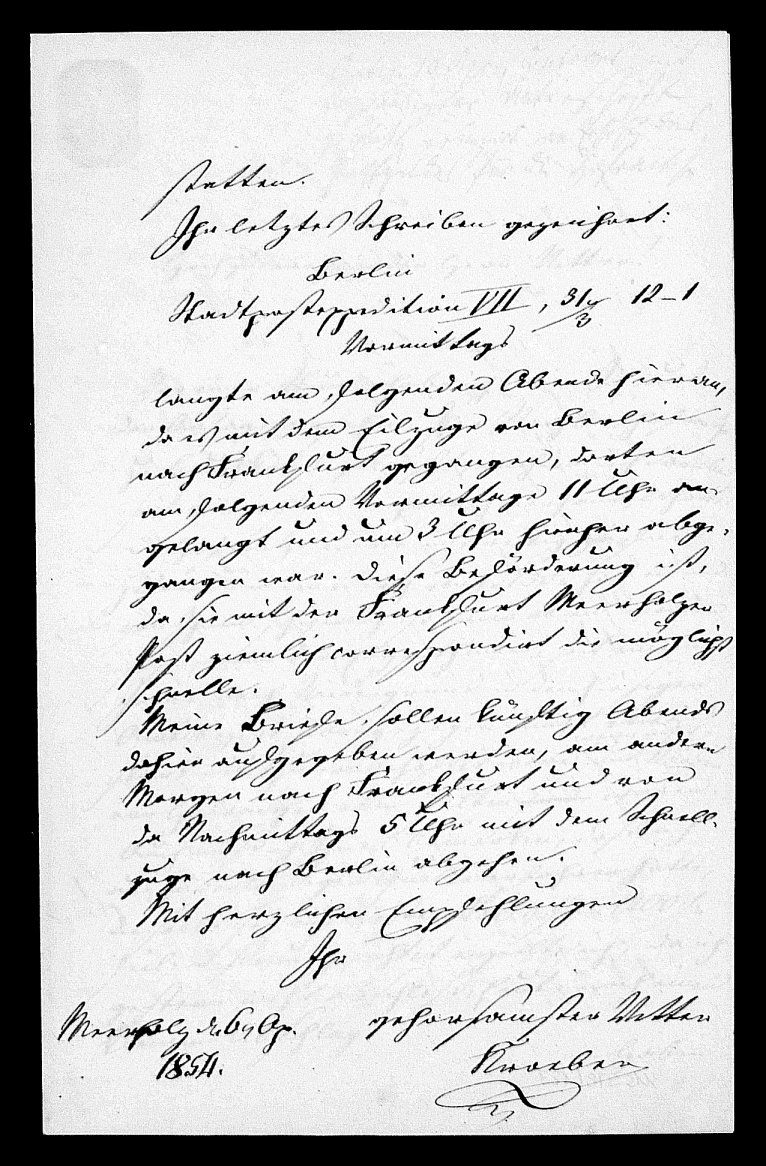 statten.
Ihr letztes Schreiben gezeichnet:
Berlin
Stadtpostexpedition VII, 31/3 12-1
Vormittags
langte am folgenden Abende hier an,
da es mit dem Eilzuge von Berlin
nach Frankfurt gegangen, dorten
am folgenden Vormittage 11 Uhr an
gelangt und um 3 Uhr hierher abge-
gangen war. Diese Beförderung ist,
da sie mit der Frankfurt Meerholzer
Post ziemlich correspondirt die möglichst
schnelle.
Meine Briefe sollen künftig Abends
dahier aufgegeben werden, am andern
Morgen nach Frankfurt und von
da Nachmittags 5 Uhr mit dem Schnell-
zuge nach Berlin abgehen.
Mit herzlichen Empfehlungen
Ihr
Meerholz d. 6 Ap. gehorsamster Vetter
1854. Kroeber